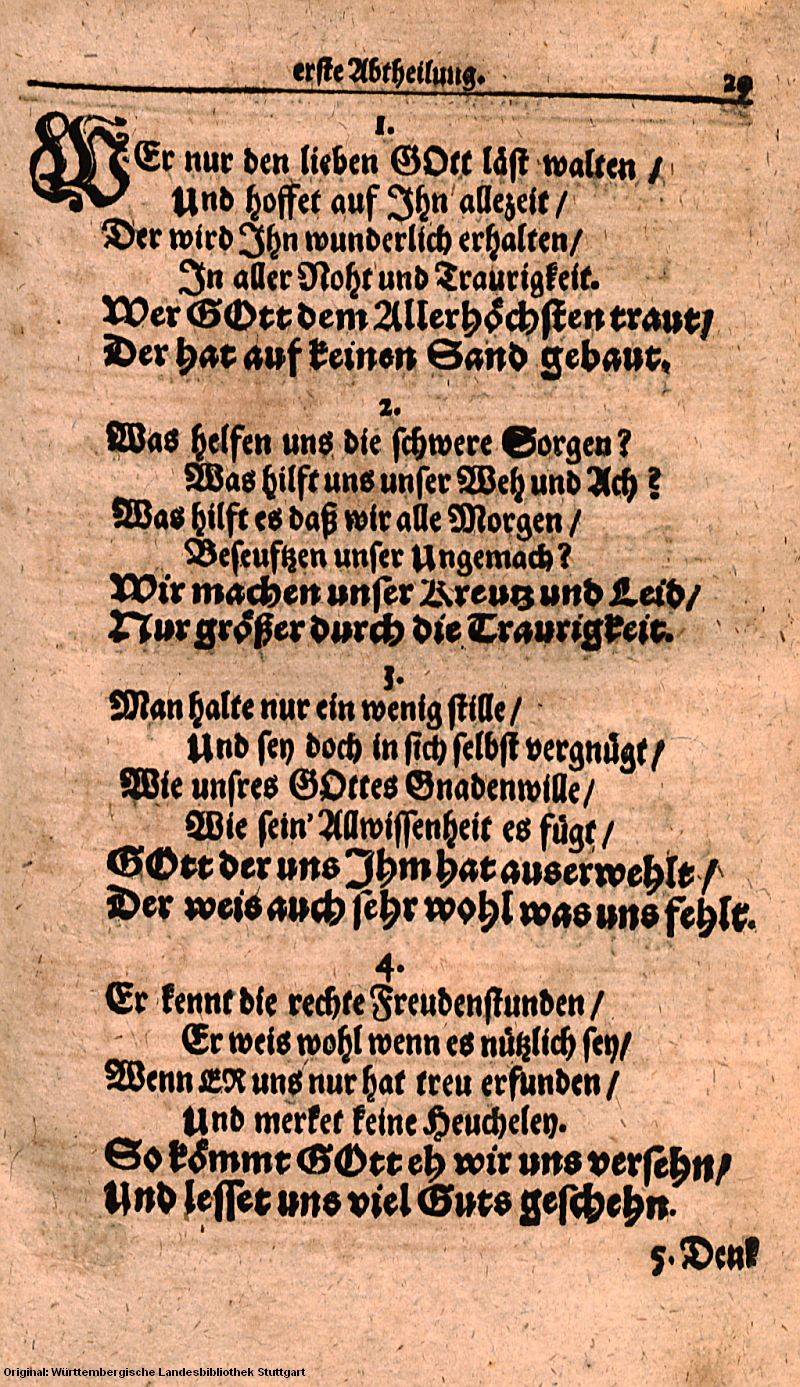 erste Abtheilung. 29
1.
WEr nur den lieben GOtt läst walten /
Und hoffet auf Ihn allezeit /
Der wird Ihn wunderlich erhalten /
In aller Noht und Traurigkeit.
Wer GOtt dem Allerhöchsten traut /
Der hat auf keinen Sand gebaut.
2.
Was helfen uns die schwere Sorgen?
Was hilft uns unser Weh und Ach?
Was hilft es daß wir alle Morgen /
Beseuftzen unser Ungemach?
Wir machen unser Kreutz und Leid /
Nur größer durch die Traurigkeit.
3.
Man halte nur ein wenig stille /
Und sey doch in sich selbst vergnügt /
Wie unsres GOttes Gnadenwille /
Wie sein' Allwissenheit es fügt /
GOtt der uns Ihm hat auserwehlt /
Der weis auch sehr wohl was uns fehlt.
4.
Er kennt die rechte Freudenstunden /
Er weis wohl wenn es nützlich sey /
Wenn ER uns nur hat treu erfunden /
Und merket keine Heucheley.
So kömmt GOtt eh wir uns versehn /
Und lesset uns viel Guts geschehn.
5. Denk
Original: Württembergische Landesbibliothek Stuttgart